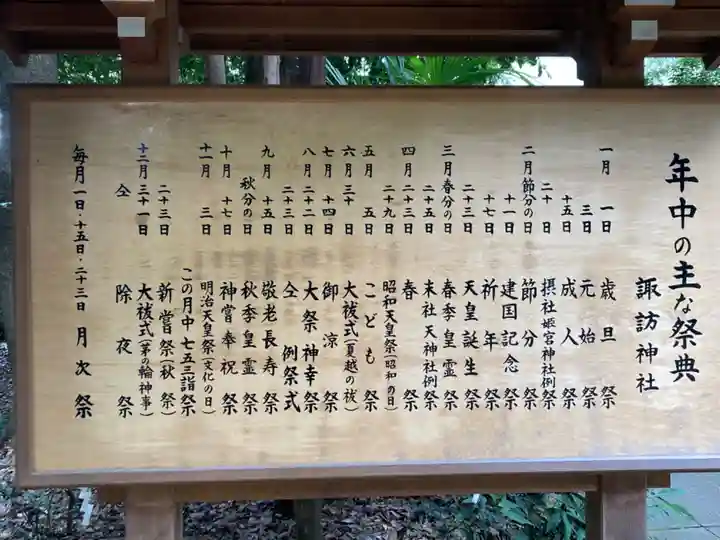 年中の主な祭典
諏訪神社
一月 一日 歳旦祭
三日 元始祭
十五日 成人祭
二十日 摂社姫宮神社例祭
二月 節分の日 節分祭
十一日 建国記念祭
十七日 祈年祭
二十三日 天皇誕生祭
三月 春分の日 春季皇霊祭
二十五日 末社天神社例祭
四月 二十三日 春祭
二十九日 昭和天皇祭(昭和の日)
五月 五日 こども祭
六月 三十日 大祓式(夏越の祓)
七月 十四日 御涼祭
八月 二十二日 大祭神幸祭
二十三日 仝 例祭式
九月 十五日 敬老長寿祭
秋分の日 秋季皇霊祭
十月 十七日 神嘗奉祝祭
十一月 三日 明治天皇祭(文化の日)
この月中 七五三詣祭
二十三日 新嘗祭(秋祭)
十二月 三十一日 大祓式(茅の輪神事)
仝 除夜祭
毎月一日・十五日・二十三日 月次祭